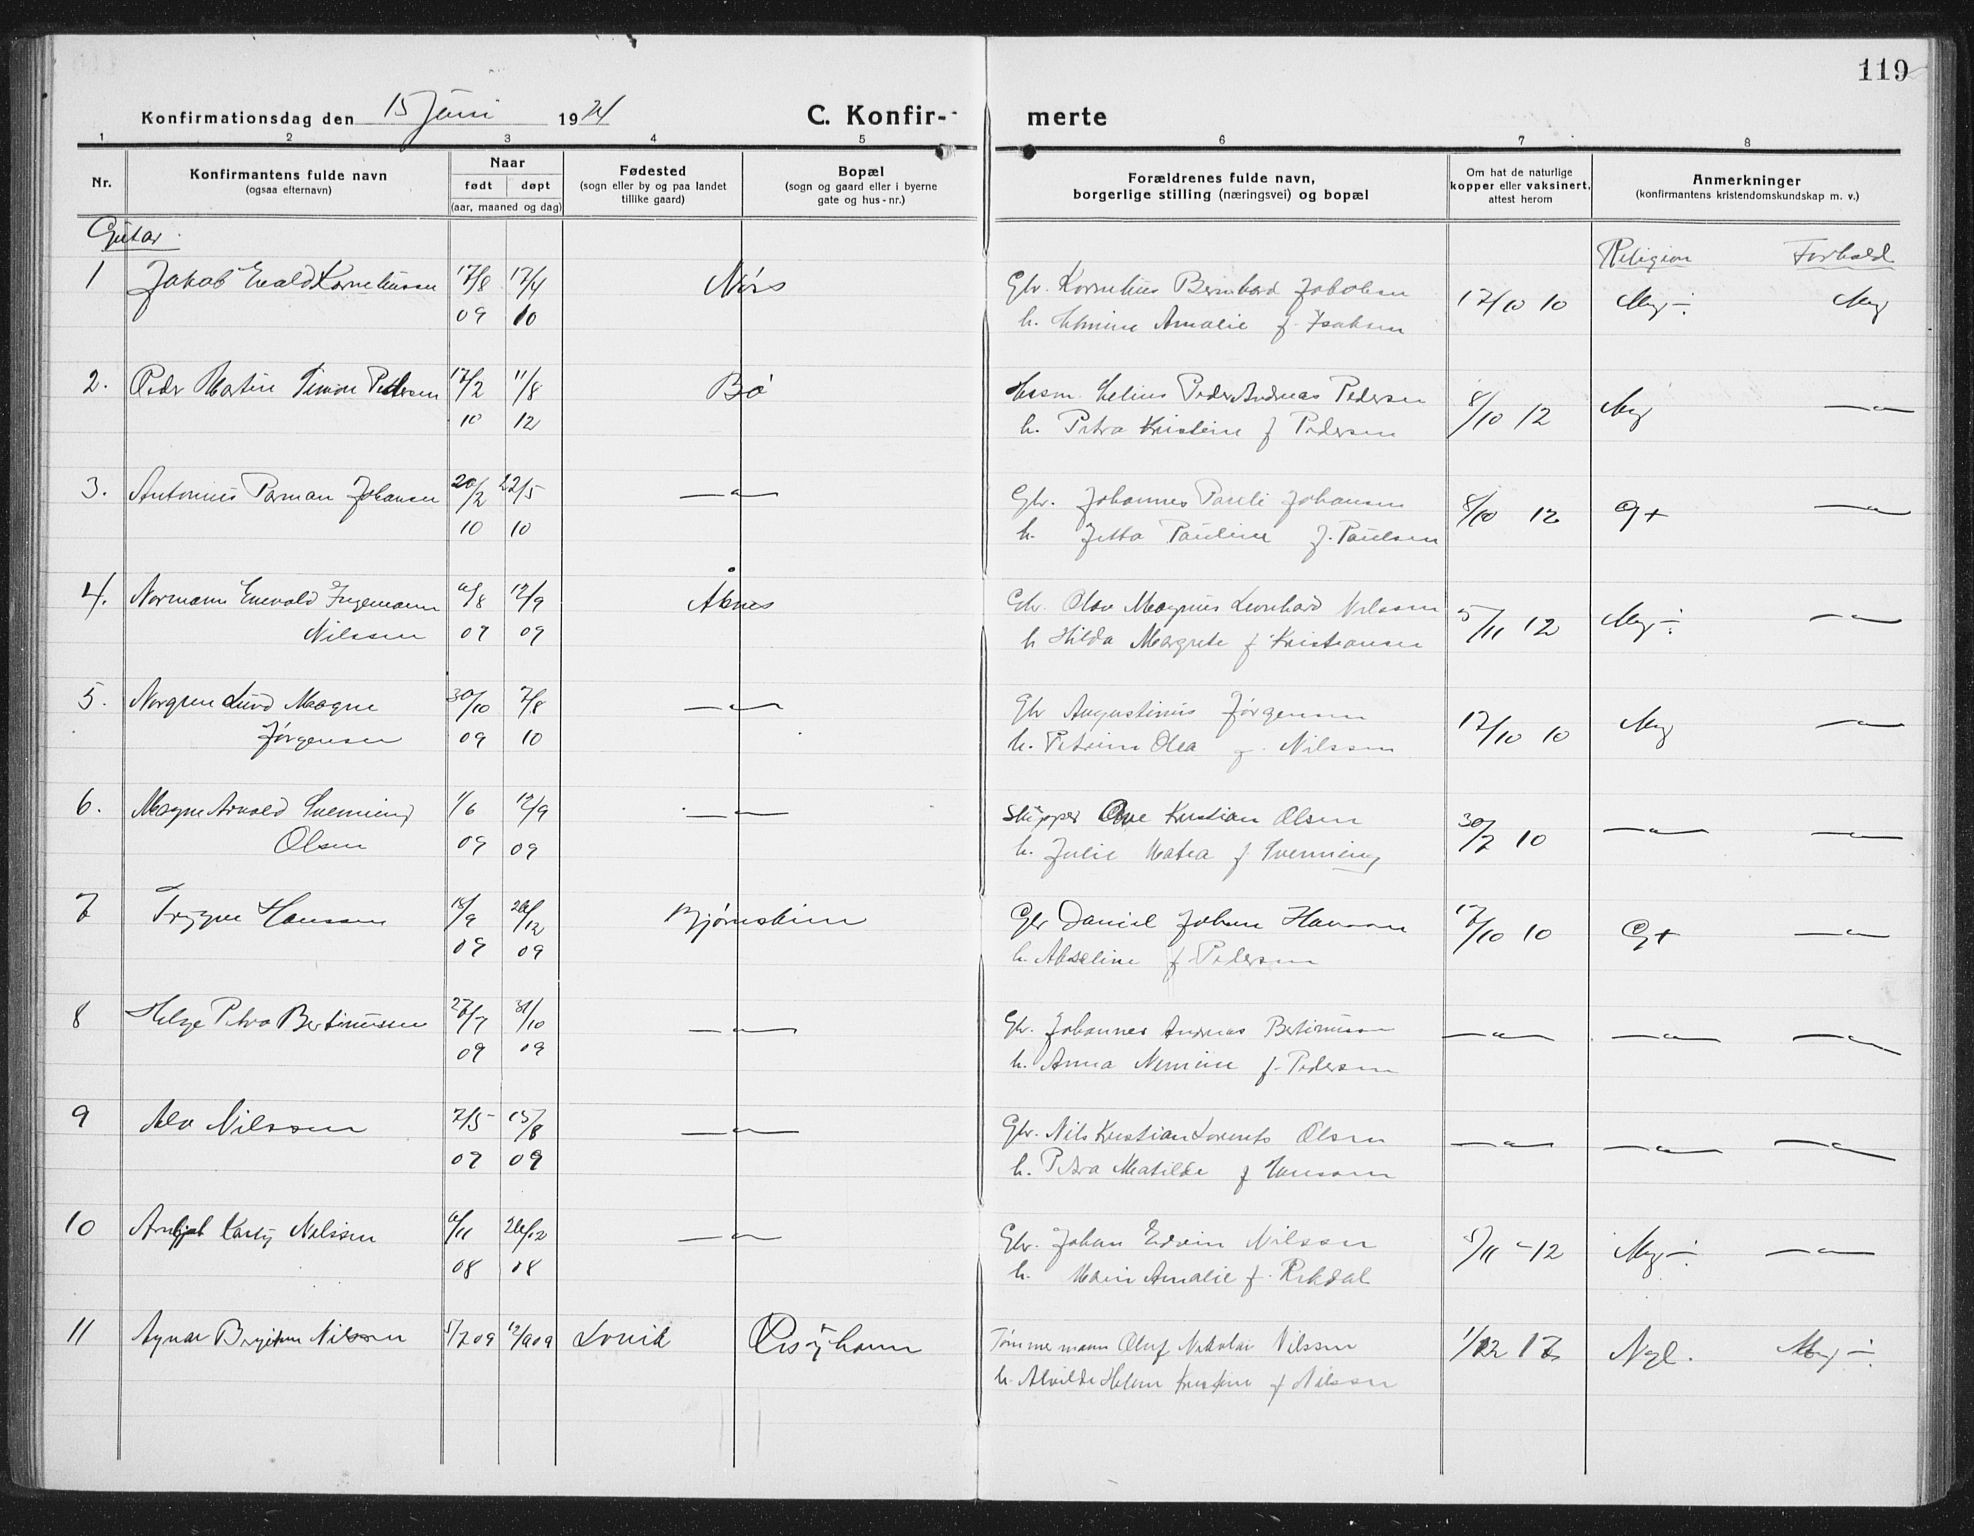 119
Konfirmationsdag den 15 Juni 1924
C. Konfir- merte
1 2 3 4 5 6 7 8
Nr.
Konfirmantens fulde navn
(ogsaa efternavn)
Naar
født døpt
(aar, maaned og dag)
Fødested
(sogn eller by og paa landet
tillike gaard)
Bopæl
(sogn og gaard eller i byerne
gate og hus-nr.)
Forældrenes fulde navn,
borgerlige stilling (næringsvei) og bopæl
Om hat de naturlige
kopper eller vaksinert,
attest herom
Anmerkninger
(konfirmantens kristendomskundskap m. v.)
Gutar.
Religion Forhold
1 Jakob Evald Korneliussen 17/8 17/4 Gbr. Kornelius Bernhard Jakobsen
09 10 h. Amalie f. Isaksen 17/10 10 Mg÷ Mg
2. Peder Martin Simon Pedersen 17/2 11/8 Bø Peder Andreas Pedersen
10 12 h. Petra Kristine f Pedersen 8/10 12 Mg —"—
3. Antonius Parman Johansen 20/2 22/5 —"— Gbr. Johannes Pauli Johansen
10 10 h. Jetta Pauline f. Paulsen 8/10 12 G+ —"—
4. Normann Enevold Ingemann 6/8 12/9 Åknes Gbr. Olav Magnus Leonhard Nilssen
Nilssen 09 09 h Hilda Margrete f Kristiansen 5/11 12 Mg÷ —"—
5. Norgren Lund Magne 30/10 7/8 —"— Gbr Augustinus Jørgensen
Jørgensen 09 10 h. Olea f. Nilssen 17/10 10 Mg —"—
6. Magne Arnold Svenning 1/6 12/9 —"— Skipper Ove Kristian Olsen
Olsen 09 09 h. Julie Matea f. Svenning 30/7 10 —"— —"—
7 Trygve Hanssen 18/9 26/12 Bjørnskinn Gbr Daniel Johan Hanssen
09 09 h. Akseline f Pedersen 17/10 10 G+ —"—
8 Helge Petra Bertinussen 27/7 31/10 —"— Gbr. Johannes Andreas Bertinussen
09 09 h. Anna f. Pedersen —"— —"— —"—
9 Alv Nilssen 7/5 15/8 —"— Gbr. Nils Kristian Lorents Olsen
09 09 h. Petra Matilde f Hanssen —"— —"— —"—
10 Nilssen 6/11 26/12 —"— Gbr. Johan Edvin Nilssen
08 08 h. Marie Amalie f. Rekdal 5/11 -12 Mg÷ —"—
11 Nilssen 5/7 09 12/9 09 Lovik Risøyhamn Tømmermann Oluf Nikolai Nilssen
h. Alvilde Helene Kristine f Nilssen 1/12 17 Ngl. Mg÷